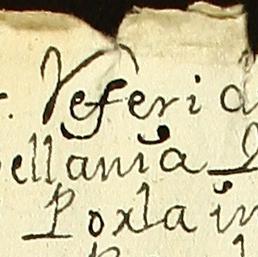 . Veferia
ellania
Poxla in